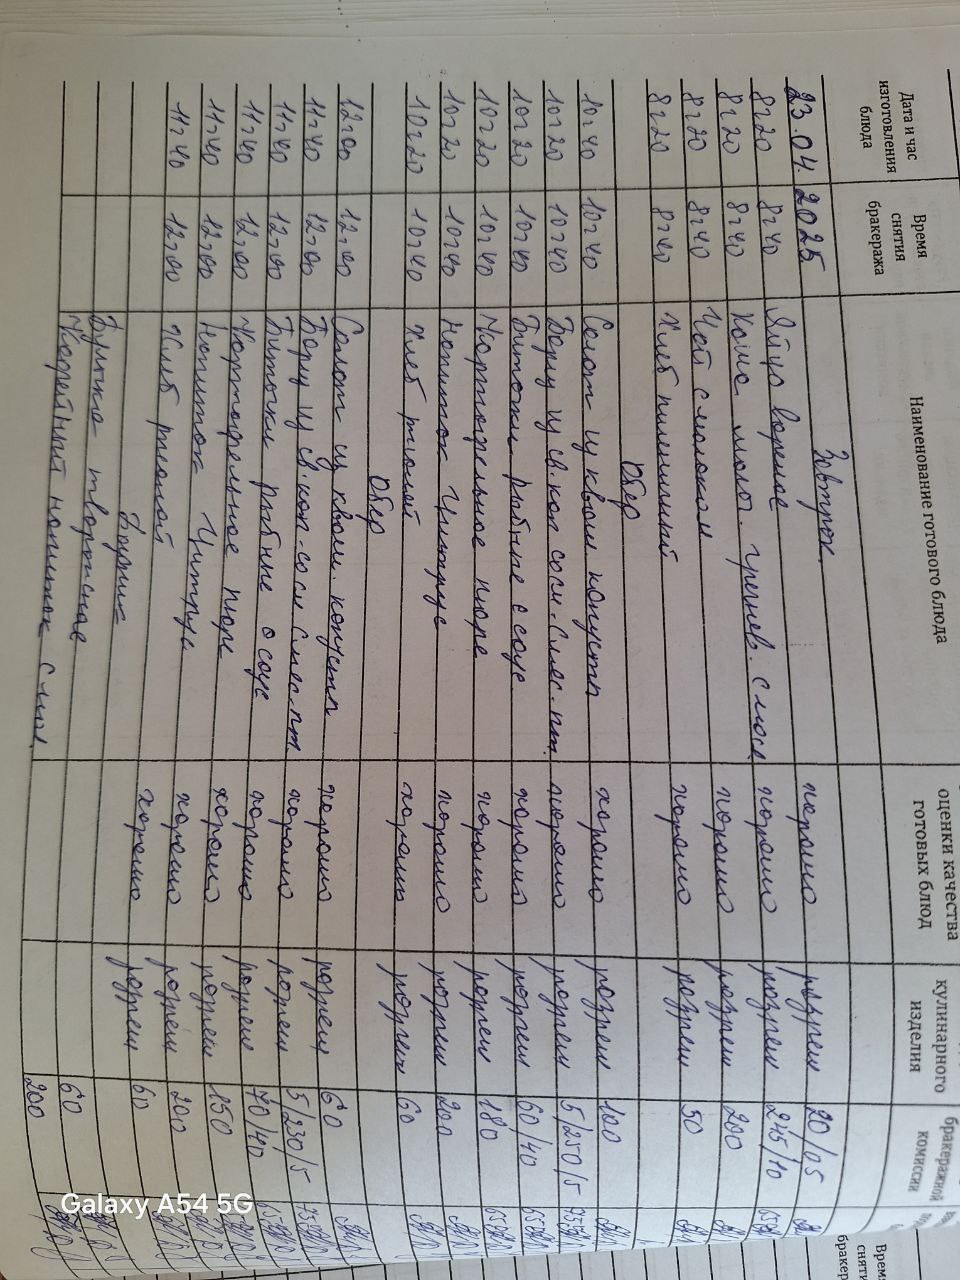 Дата и час изготовления блюда
Время снятия бракеража
Наименование готового блюда
оценки качества готовых блюд
кулинарного изделия
бракеражной комиссии
23.04.2025
Завтрак
8ч20 8ч40 Яйцо вареное хорошо разрешен
8ч20 8ч40 Каша молоч. гречнев. с масл хорошо разрешен 20/05
8ч20 8ч40 Чай с молоком хорошо разрешен 245/10
8ч20 8ч40 Хлеб пшеничный хорошо разрешен 200
50
Обед
10ч40 10ч40 Салат из квош капусты хорошо разреш 100
10ч20 10ч40 Борщ из св. кап со см. смес. пт. хорошо разреш 5/250/5
10ч20 10ч40 Биточки рыбные с соус хорошо разреш 60/40
10ч20 10ч40 Картофельное пюре хорошо разреш 180
10ч20 10ч40 Напиток Цитрус хорошо разреш 200
10ч20 10ч40 Хлеб ржаной хорошо разреш 60
Обед
12ч00 12ч00 Салат из квош. капусты хорошо разреш 60
11ч40 12ч00 Борщ из св. кап со см смес. пт хорошо разреш 5/230/5
11ч40 12ч00 Биточки рыбные с соус хорошо разреш 70/40
11ч40 12ч00 Картофельное пюре хорошо разреш 150
11ч40 12ч00 Напиток Цитрус хорошо разреш 200
11ч40 12ч00 Хлеб ржаной хорошо разреш 60
Булочка творожная 60
Кофейный напиток с мол. 200
Время снятия бракер
Galaxy A54 5G